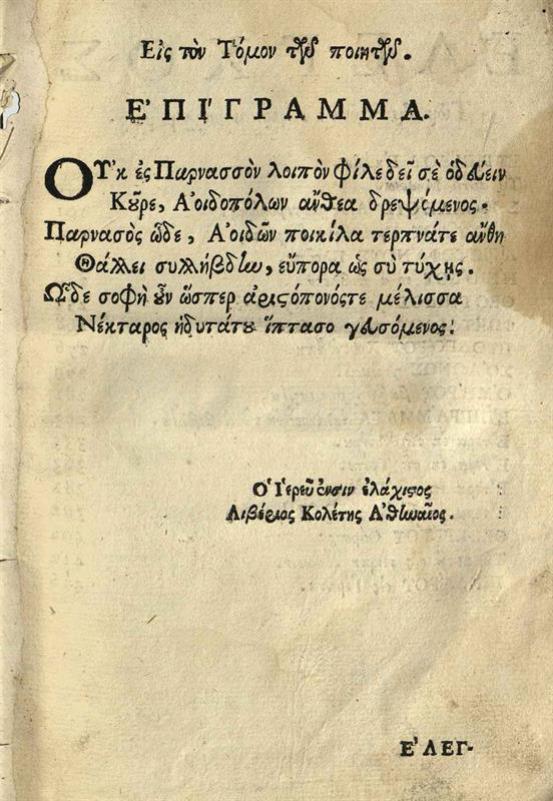 Εἰς τὸν Τόμον τῶν ποιητῶν.
Ε᾿ΠΙ΄ΓΡΑΜΜΑ.
ΟΥ᾿κ ἐς Παρνασσὸν λοιπὸν φίλε δεῖ σὲ ὁδεύειν
Κοῦρε, Α᾿οιδοπόλων ἄνθεα δρεψόμενος·
Παρνασὸς ὧδε, Α᾿οιδῶν ποικίλα τερπνάτε ἄνθη
Θάλλει συλλήβδίω, εὔπορα ὡς σὺ τύχῃς.
Ω῟δε σοφὴ οὖν ὥσπερ ἀριστόπονόςτε μέλισσα
Νέκταρος ἡδυτάτου ἵπτασο γευσόμενος.
Ο῾ Ι῾ερεῦσιν ἐλάχιστος
Λιβέριος Κολέτης Α᾿θηναῖος.
Ε᾿ΛΕΓ-